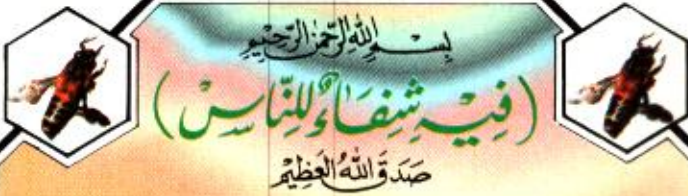 بِسْمِ اللهِ الرَّحْمٰنِ الرَّحِيْمِ
(فِيْهِ شِفَاءٌ لِلنَّاسِ)
صَدَقَ اللهُ الْعَظِيْمُ